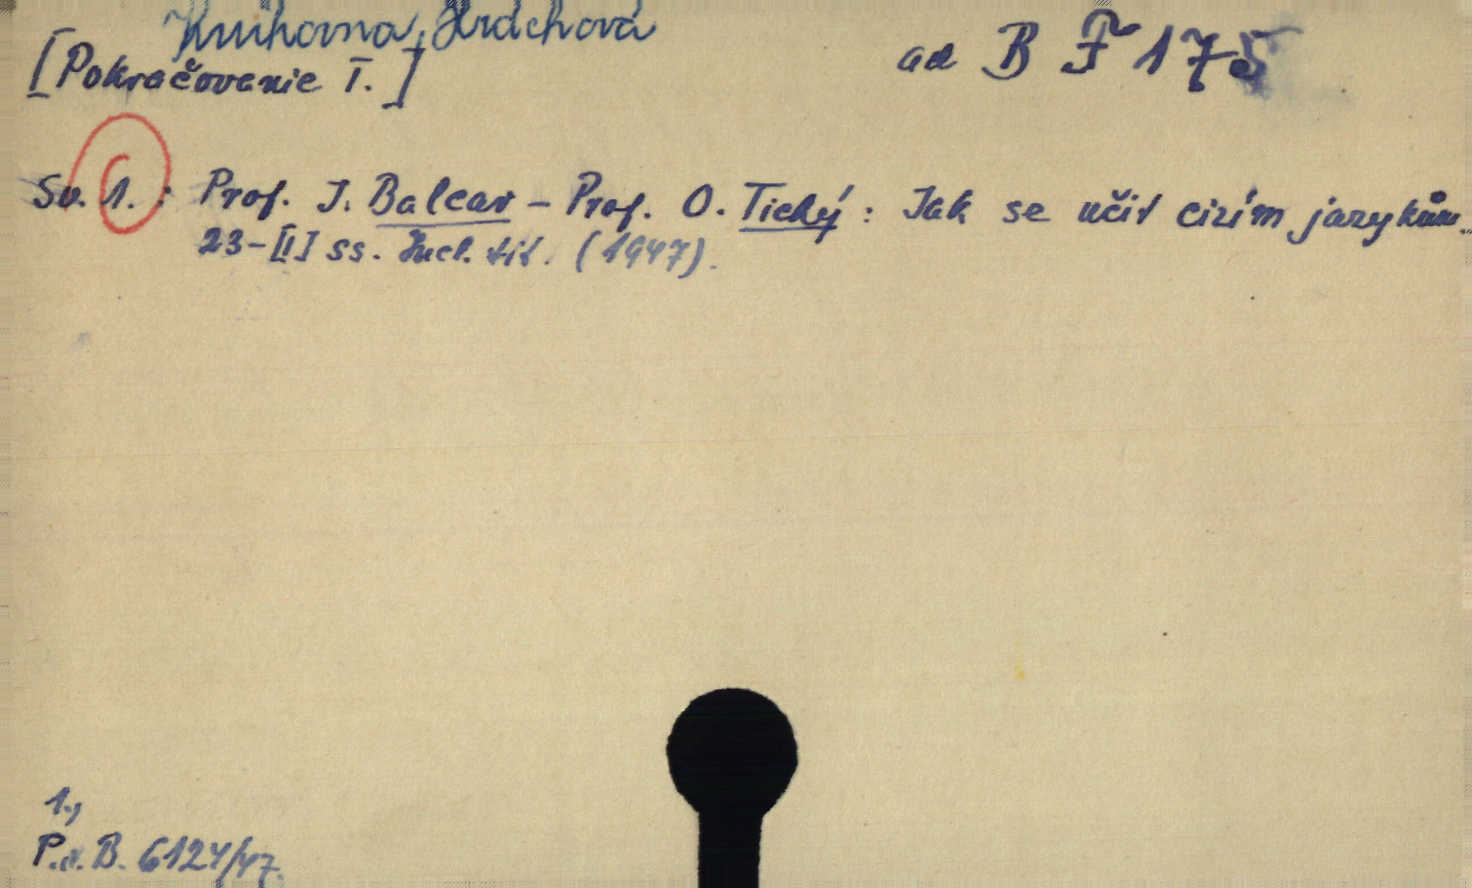 Knihovna Hrdchova
[Pokračovanie I.]
ad B F 175
Sv. 1. : Prof. J. Balcar - Prof. O. Tichý : Jak se učit cizím jazykům..
23-[I] ss. Incl. tit. (1947).
1.,
P.d. B. 6124/47.